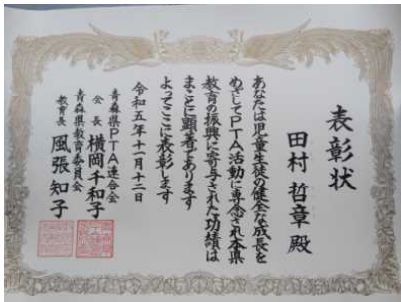 表彰状
田村 哲章 殿
あなたは児童生徒の健全な成長を
めざしてPTA活動に専念され本県
教育の振興に寄与された功績は
まことに顕著であります
よってここに表彰します
令和五年十一月十二日
青森県PTA連合会
会長 横岡千和子
青森県教育委員会
教育長 風張知子